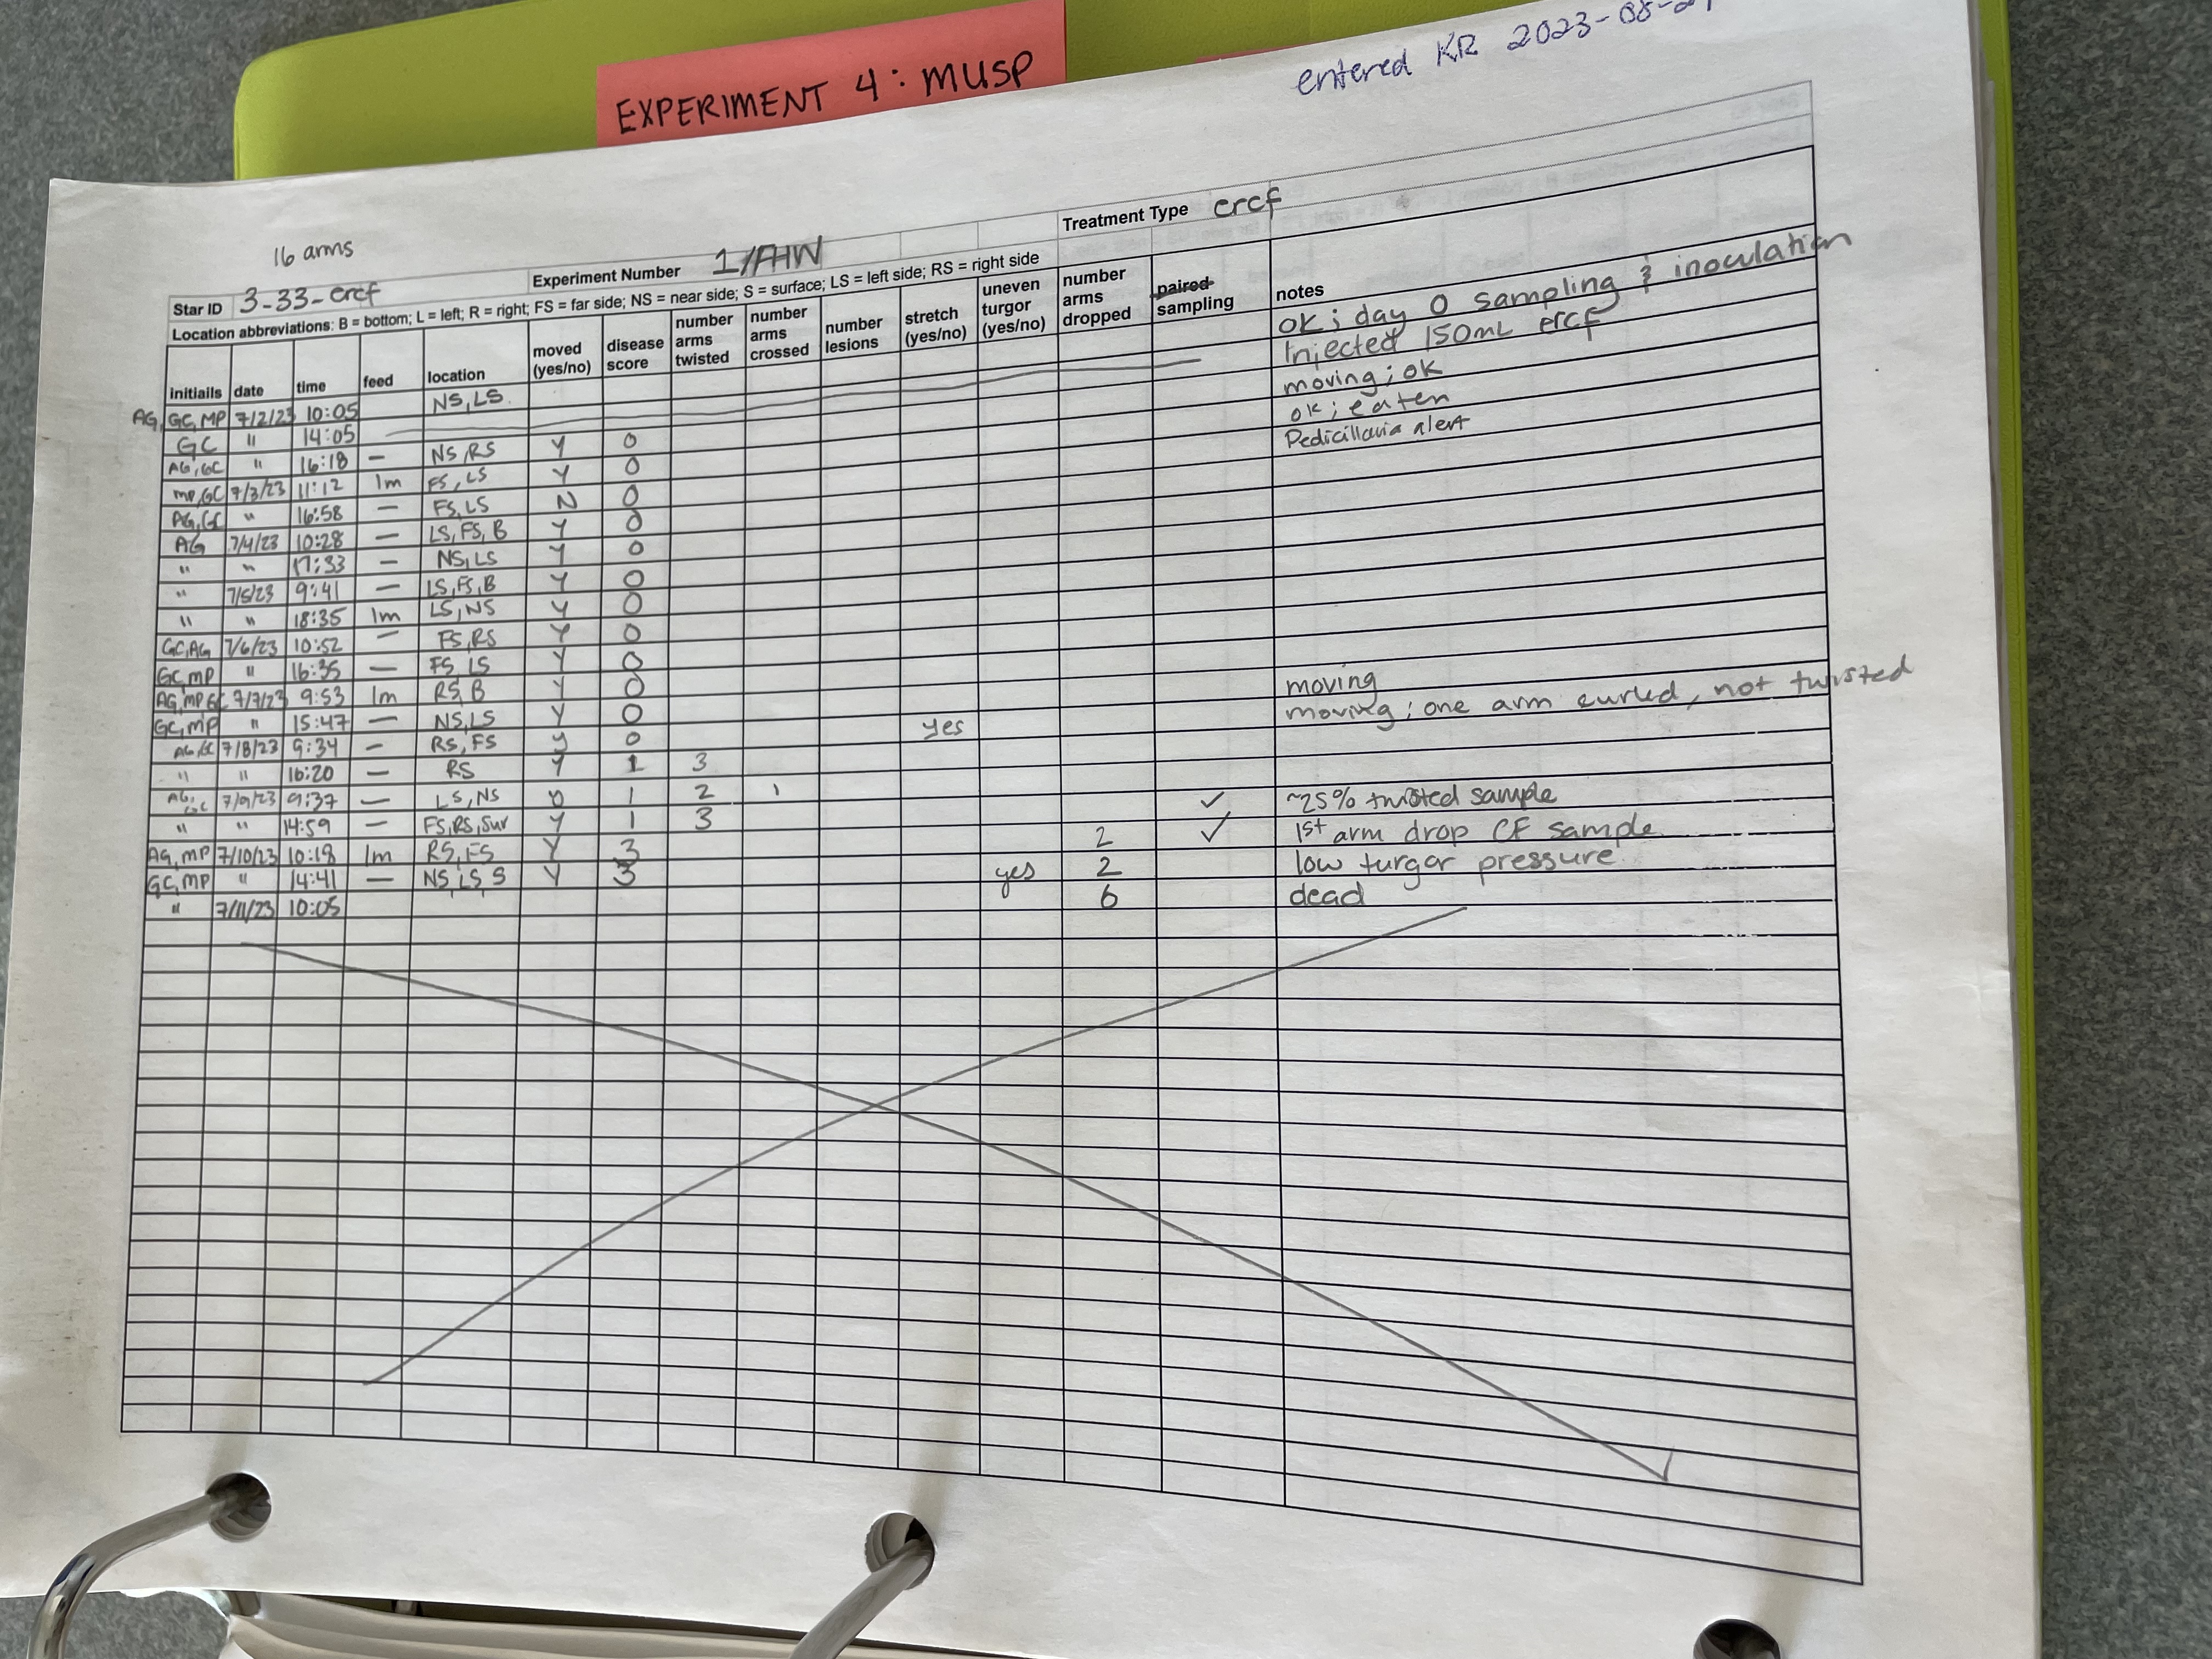 EXPERIMENT 4: MUSP
entered KR 2023-08-
16 arms
Star ID 3-33-crcf Experiment Number 1/FHW Treatment Type crcf
Location abbreviations: B = bottom; L = left; R = right; FS = far side; NS = near side; S = surface; LS = left side; RS = right side
initials date time feed location moved (yes/no) disease score number arms twisted number arms crossed number lesions stretch (yes/no) uneven turgor (yes/no) number arms dropped paired sampling notes
AG, GC, MP 7/2/23 10:05 NS, LS ok; day 0 sampling & inoculation
GC " 14:05 Injected 150mL crcf
AG, GC " 16:18 — NS, RS Y 0 moving; ok
MP, GC 7/3/23 11:12 1m FS, LS Y 0 ok; eaten
AG, GC " 16:58 — FS, LS N 0 Pedicillaria alert
AG 7/4/23 10:28 — LS, FS, B Y 0
" " 17:33 — NS, LS Y 0
" 7/5/23 9:41 — LS, FS, B Y 0
" " 18:35 1m LS, NS Y 0
GC, AG 7/6/23 10:52 — FS, RS Y 0
GC, MP " 16:35 — FS, LS Y 0
AG, MP GC 7/7/23 9:53 1m RS, B Y 0 moving
GC, MP " 15:47 — NS, LS Y 0 yes moving; one arm curled, not twisted
AG, GC 7/8/23 9:34 — RS, FS y 0
" " 16:20 — RS Y 1 3
AG, GC 7/9/23 9:37 — LS, NS 1 2 1 ✓ ~25% twisted sample
" " 14:59 — FS, RS, Sur Y 1 3
AG, MP 7/10/23 10:18 1m RS, FS Y 3 2 ✓ 1st arm drop CF sample
GC, MP " 14:41 — NS, LS, S Y 3 yes 2 low turgar pressure
" 7/11/23 10:05 6 dead